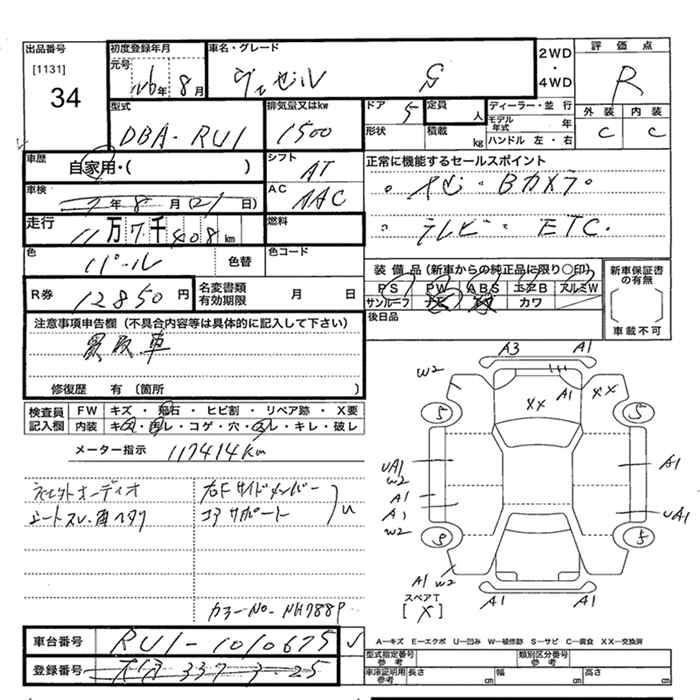 出品番号
[1131]
34
初度登録年月
元号 H26年 8月
車名・グレード
ヴェゼル G
2WD
・
4WD
評価点
R
外装 内装
C C
型式
DBA-RU1
排気量又はkw
1500
ドア 5
形状
定員 人
積載 kg
ディーラー・並行
モデル年式 年
ハンドル 左・右
車歴
自家用・( )
シフト
AT
車検
7年 8月(21日)
AC
AAC
正常に機能するセールスポイント
・ナビ・Bカメラ・
・テレビ・ETC.
走行
11万7千408km
燃料
色
パール
色替
色コード
R券
12850円
名変書類
有効期限
月 日
装備品(新車からの純正品に限り○印)
PS PW ABS エアB アルミW
サンルーフ ナビ カワ
後日品
新車保証書
の有無
車載不可
注意事項申告欄(不具合内容等は具体的に記入して下さい)
買取車
修復歴 有(箇所 )
検査員
記入欄
FW キズ・飛石・ヒビ割・リペア跡・X要
内装 キズ・汚レ・コゲ・穴・スレ・キレ・破レ
メーター指示
117414Km
ネットオーディオ
シートスレ・肩ヘタリ
右Fサイドメンバー
コアサポート
U
カラーNo- NH788P
A3 A1
W2
A1
XX
XX
5 5
UA1
W2
A1
A1
A1
W2
UA1
5 5
A1 W2
スペアT
[X]
A1 A1
車台番号
RU1-1010675
登録番号
A―キズ E―エクボ U―凹み W―補修跡 S―サビ C―腐食 XX―交換済
型式指定番号
参考
類別区分番号
参考
車庫証明用
参考
長さ cm
幅 cm
高さ cm